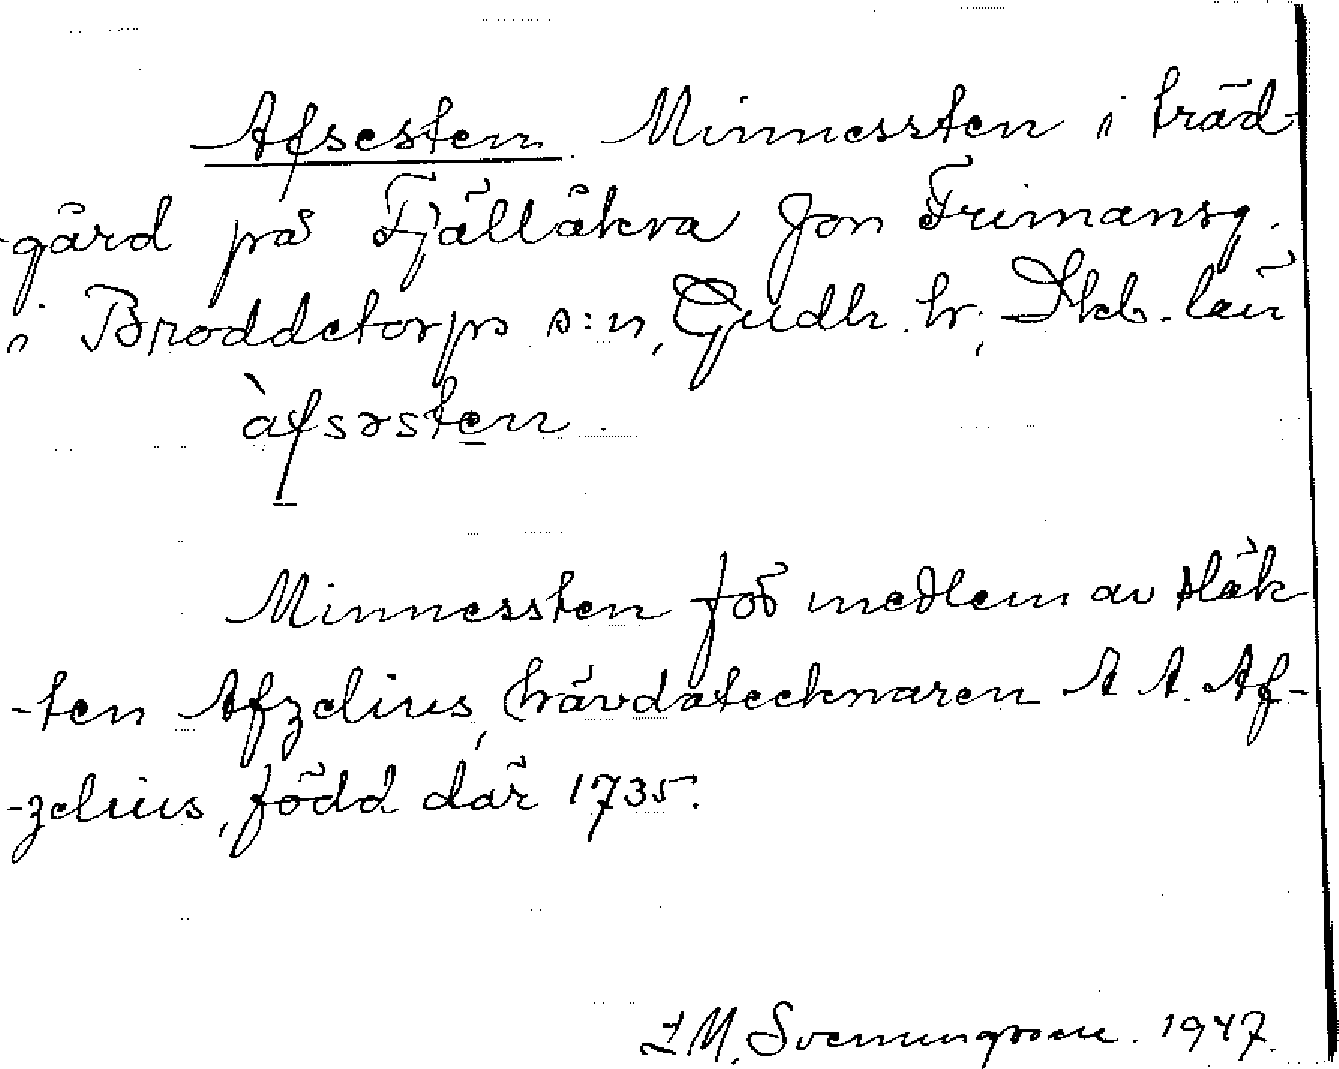 Afsesten. Minnessten i träd-
-gård på Fjällåkra Jon Frimansg.
i Broddetorps s:n, Gudh. hr, Skb. län
àfsəsten.
Minnessten för medlem av släk
-ten Afzelius, (hävdatecknaren A A. Af-
-zelius, född där 1735.
S M. Svenungsson. 1947.